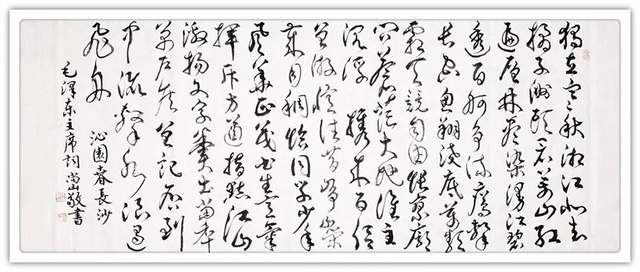 獨立寒秋湘江北去
橘子洲頭看萬山紅
遍層林盡染漫江碧
透百舸爭流鷹擊
長空魚翔淺底萬類
霜天競自由悵寥廓
問蒼茫大地誰主
沉浮 攜來百侶
曾遊憶往昔崢嶸
歲月稠恰同學少年
風華正茂書生意氣
揮斥方遒指點江山
激揚文字糞土當年
萬戶侯曾記否到
中流擊水浪遏
飛舟 沁園春長沙
毛澤東主席詞 尚山敬書